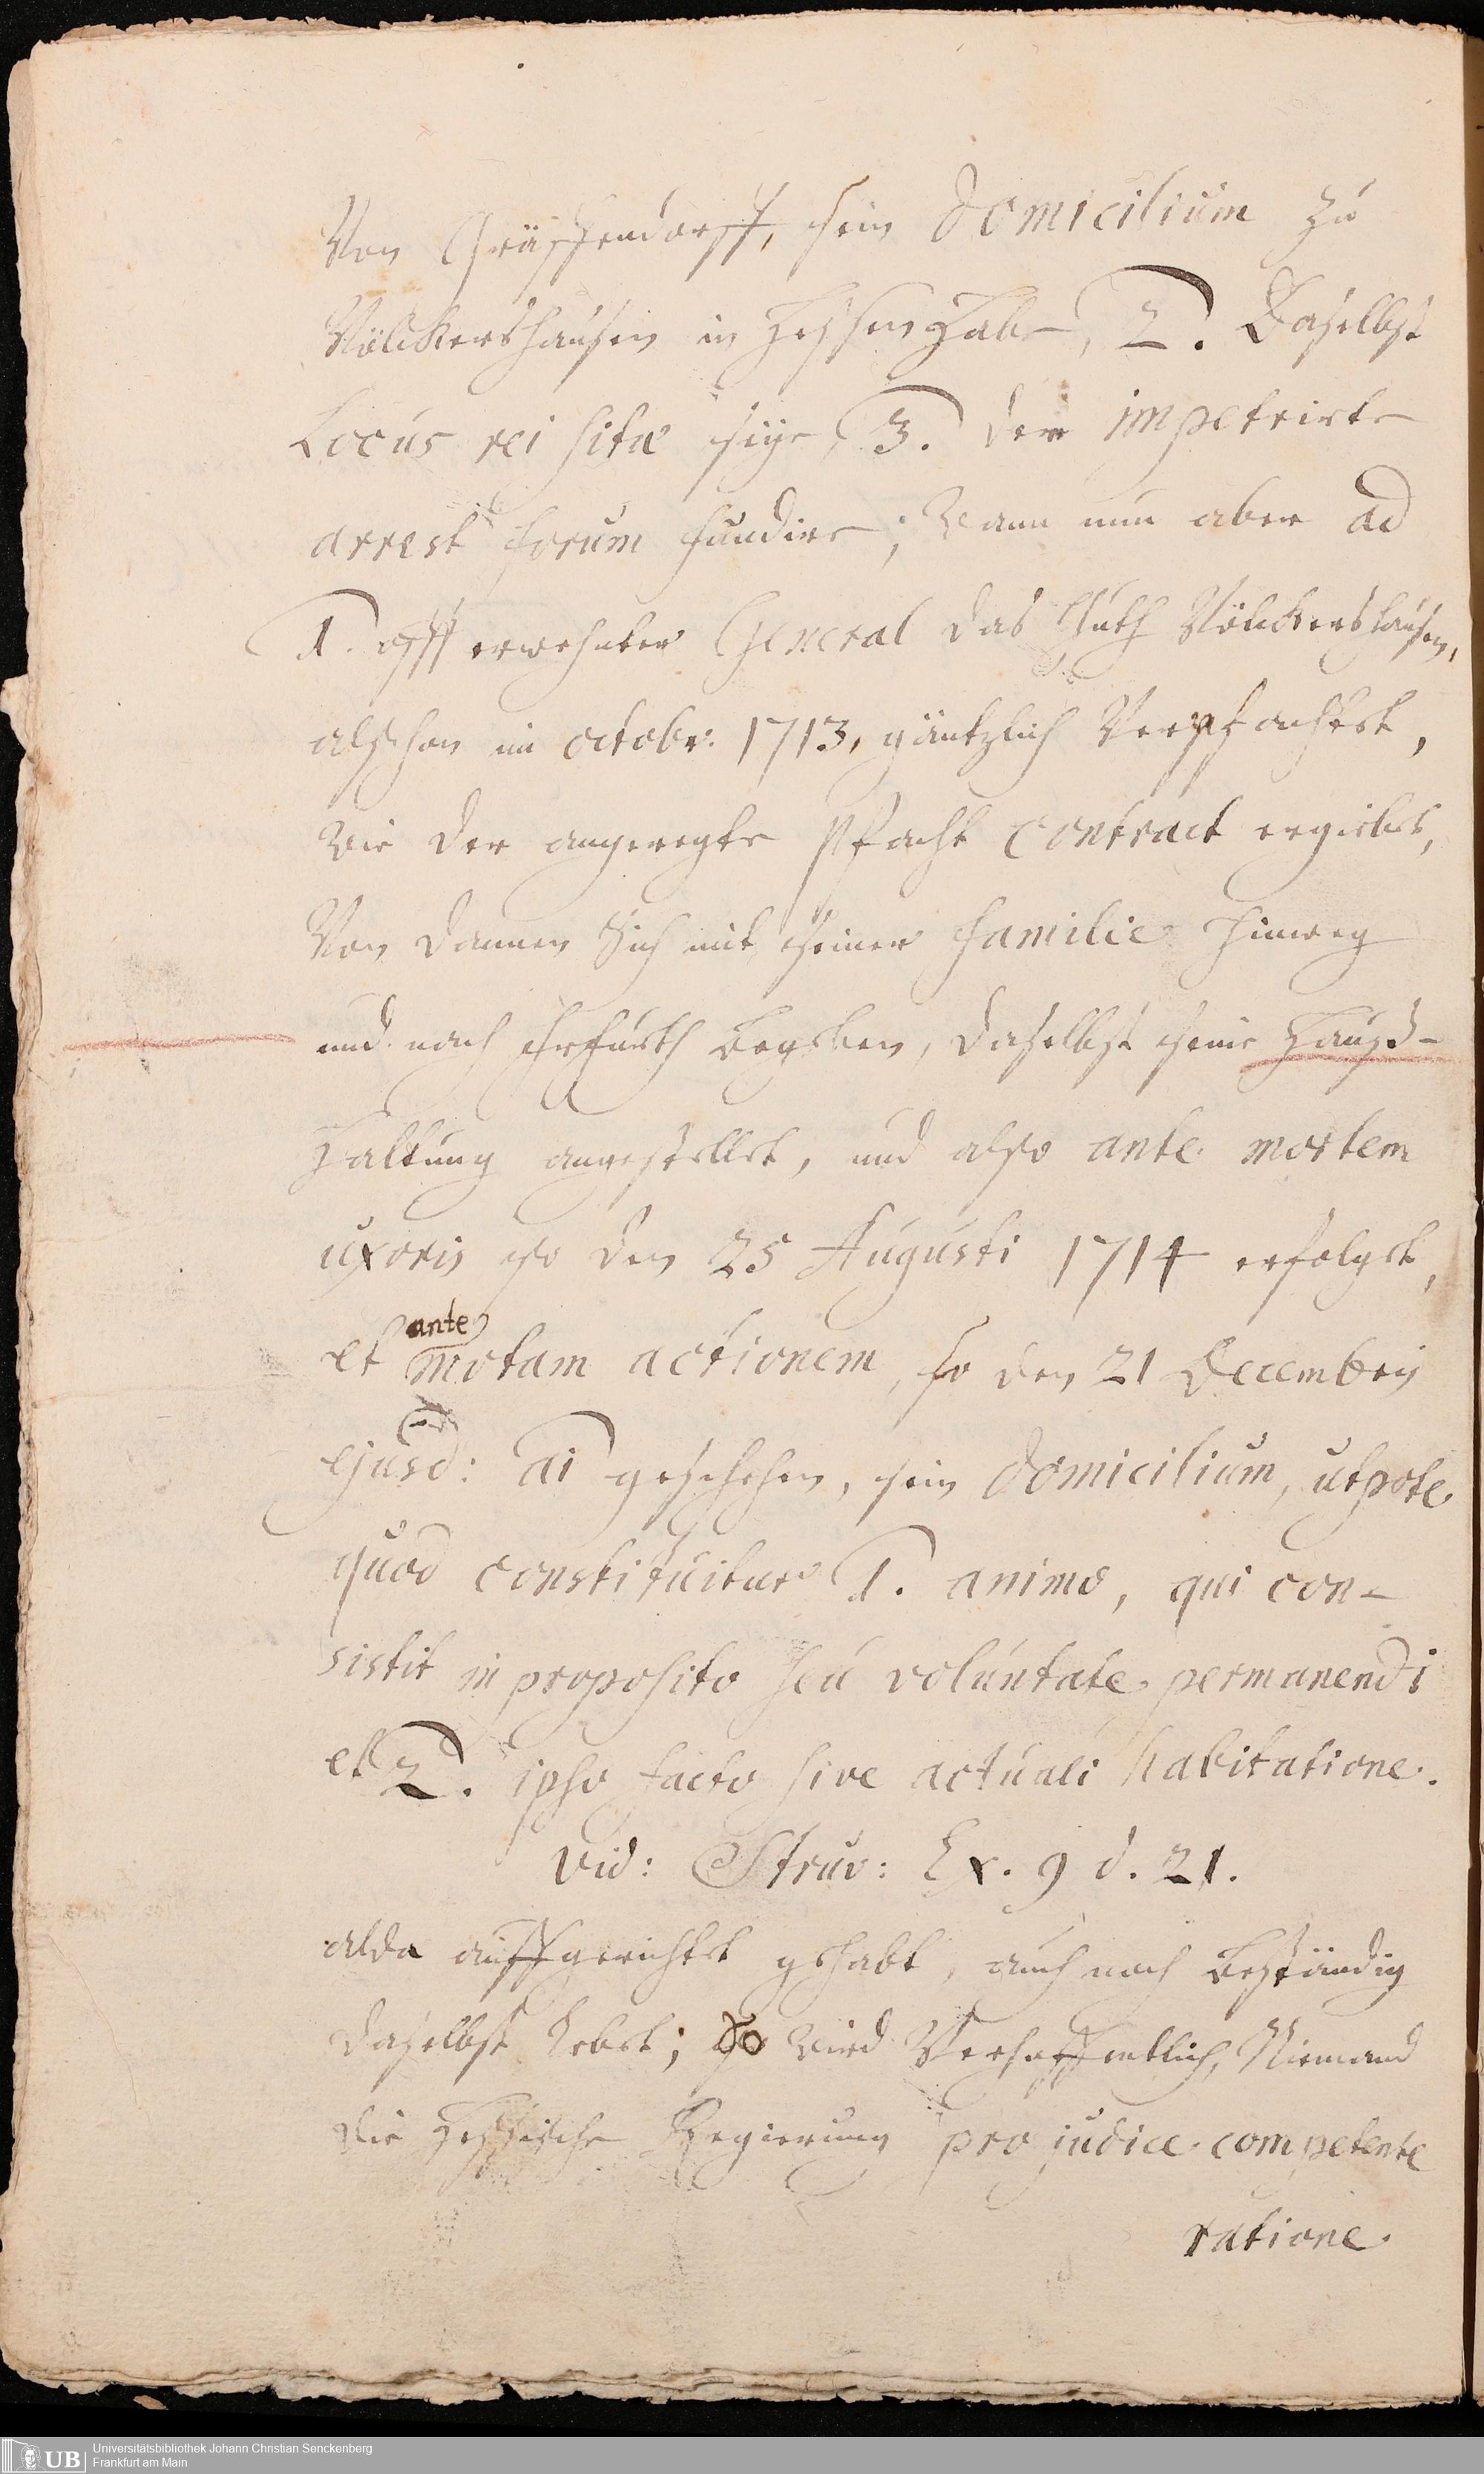 Von Gräffendorff, sein Domicilium zu
Völckershausen in Hessen habe, 2. Daselbst
Locus rei sitæ seÿe, 3. der impetrirte
arrest forum fundire; Wann nun aber ad
1. offterwehnter General das Guth Völckershausen,
alschon im octobr. 1713, gäntzlich Verpfachtet,
wie der angeregte Pfacht Contract ergiebet,
Von dannen Sich mit seiner Familie hinweg
und nach Erfurth begeben, daselbst seine Hauß-
haltung angestellet, und also ante mortem
uxoris so den 25 Augusti 1714 erfolget,
ante
et motam actionem, so den 21 Decembris
ejusd: ai geschehen, sein Domicilium, utpote
quod constituitur 1. animo, qui con-
sistit in proposito seu voluntate permanendi
et 2. ipso facto sive actuali habitatione.
vid: Struv: Ex. 9 d. 21.
alda auffgerichtet gehabt, auch noch beständig
daselbst lebet; So wird Verhoffentlich, Niemand
die Hessische Regierung pro judice competente
ratione
UB
Universitätsbibliothek Johann Christian Senckenberg
Frankfurt am Main